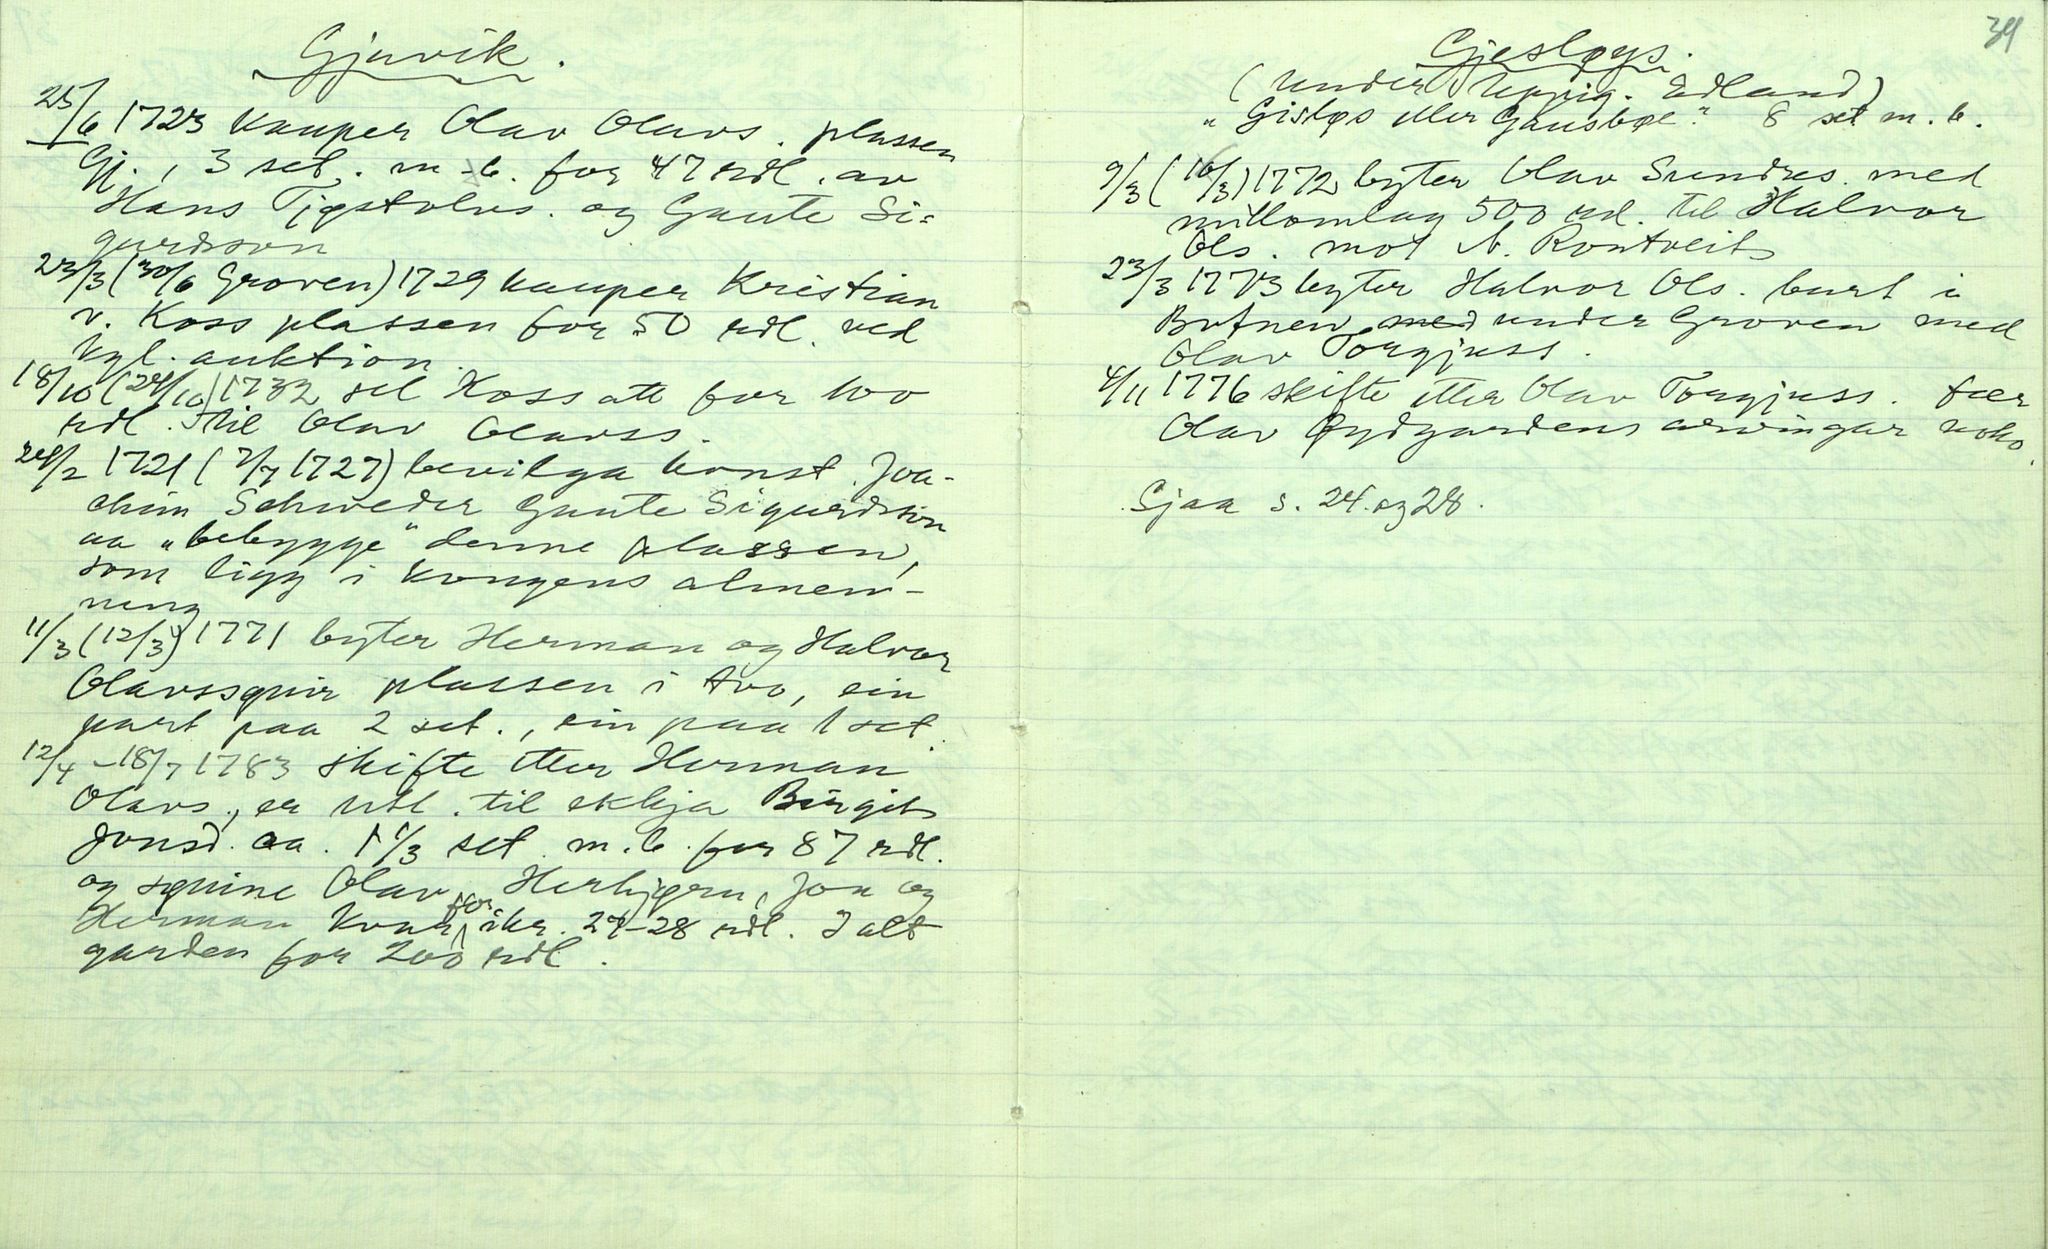 Gjuvik.
25/6 1723 kauper Olav Olavs. plassen
Gj., 3 set. m. b. for 47 rdl. av
Hans Tjøstolvs. og Gaute Si-
gurdsson
23/3 (30/6 Groven) 1729 kauper Kristian
v. Koss plassen for 50 rdl. ved
kgl. auktion.
18/10 (24/10) 1732 sel Koss att for 100
rdl. til Olav Olavss.
24/2 1721 (7/7 1727) bevilga konst. Joa-
chim Schweder Gaute Sigurdsson
aa „bebygge" denne plassen,
som ligg i kongens almen-
ning
11/3 (12/3) 1771 byter Herman og Halvor
Olavssønir plassen i tvo, ein
part paa 2 set., ein paa 1 set.
12/4 - 18/7 1783 skifte etter Herman
Olavs., er utl. til ekkja Birgit
Jonsd. aa. 1 1/3 set. m. b. for 87 rdl.
og sønine Olav, Herbjørn, Jon og
Herman kvar for ikr. 27-28 rdl. I alt
garden for 200 rdl.
39
Gjesløys.
(under Uppig. Edland)
„Gisløs eller Gausbøe." 8 set m. b.
9/3 (16/3) 1772 byter Olav Sundres. med
millomlag 500 rdl. til Halvor
Ols. mot N. Rontveit
23/3 1773 byter Halvor Ols. burt i
Botnen med under Groven med
Olav Torgjuss.
4/11 1776 skifte etter Olav Torgjuss. fær
Olav Øydgardens arvingar noko.
Sjaa s. 24. og 28.